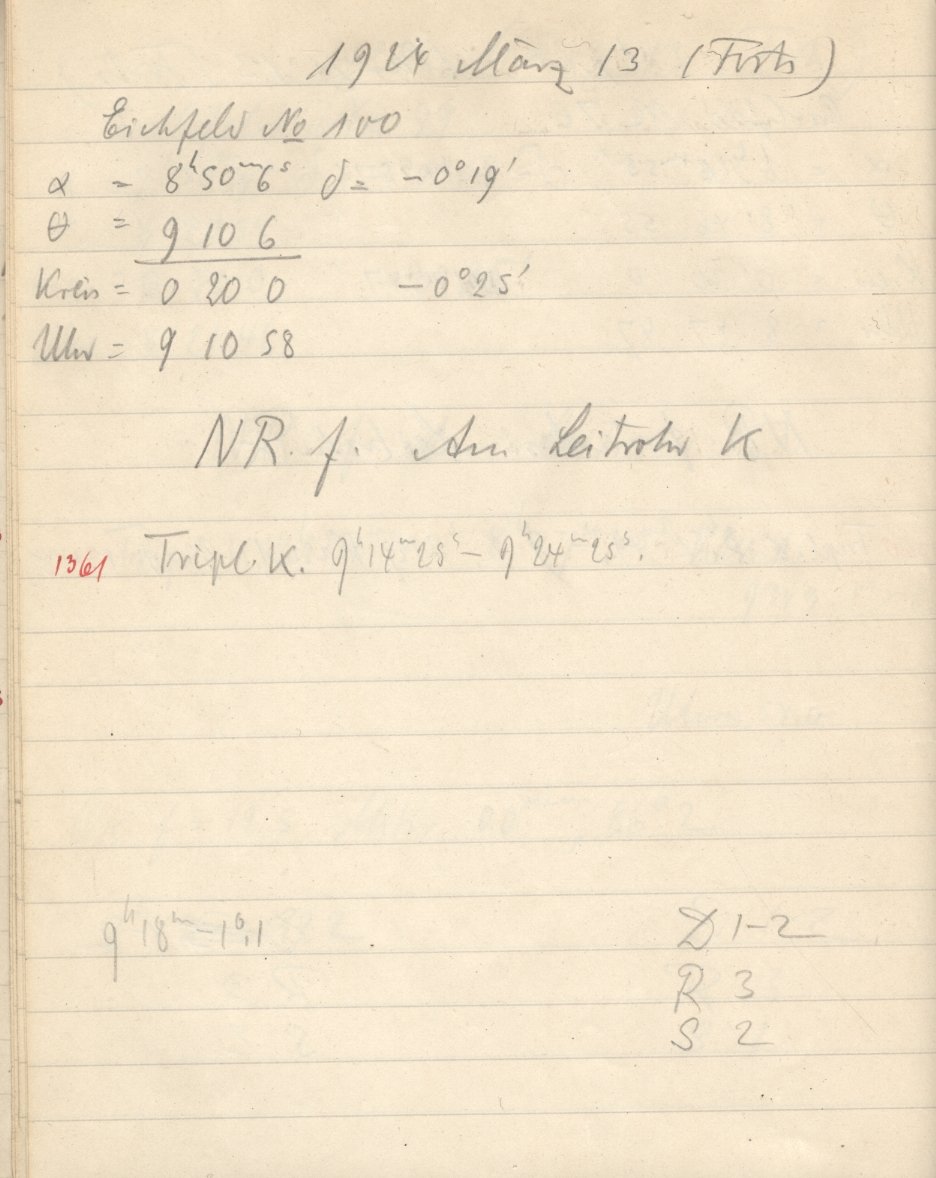 1924 März 13 (Forts)
Eichfeld No 100
α = 8h50m6s δ = -0°19'
θ = 9 10 6
Kreis = 0 20 0 -0°25'
Uhr = 9 10 58
NR. f. Am Leitrohr K
1361 Tripl. K. 9h14m25s - 9h24m25s.
9h18m -1°,1 D 1-2
R 3
S 2